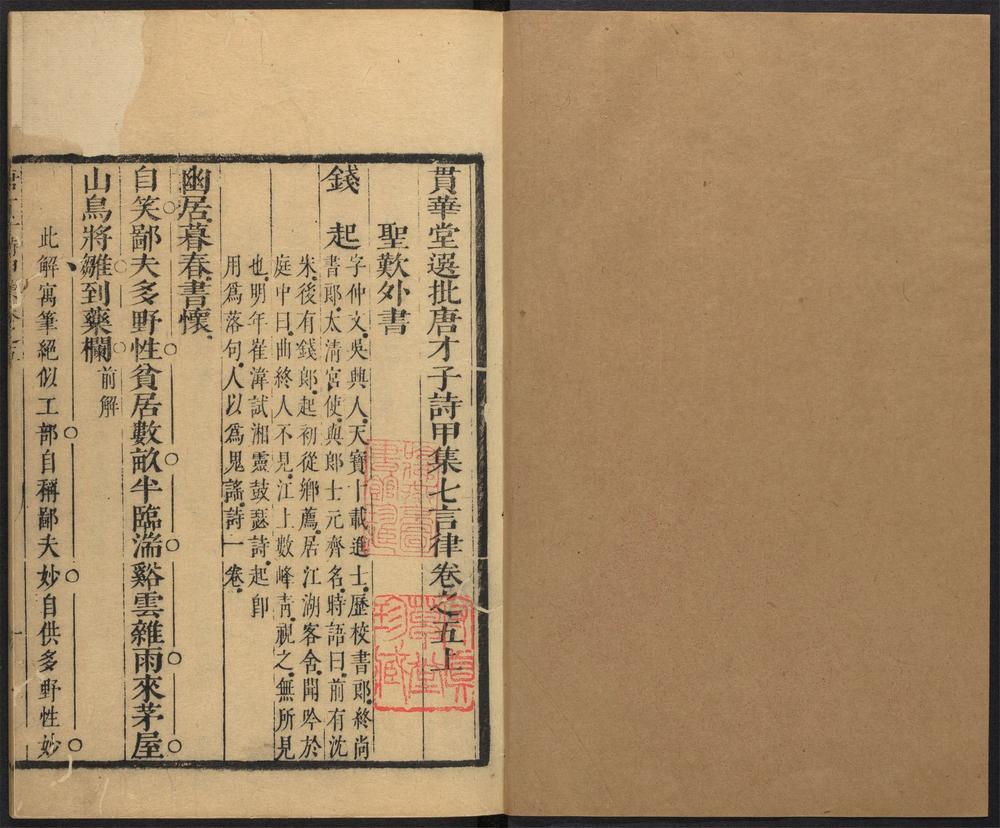 貫華堂選批唐才子詩甲集七言律卷之五上
聖歎外書
錢起
字仲文吳興人天寶十載進士歷校書郎終尚
書郎太清宮使與郎士元齊名時語曰前有沈
朱後有錢郎起初從鄉薦居江湖客舍閒吟於
庭中曰曲終人不見江上數峰青視之無所見
也明年崔湋試湘靈鼓瑟詩起卽
用爲落句人以爲鬼謠詩一卷
幽居暮春書懷
自笑鄙夫多野性貧居數畝半臨湍谿雲雜雨來茅屋
山鳥將雛到藥欄前解
此解寓筆絕似工部自稱鄙夫妙自供多野性妙